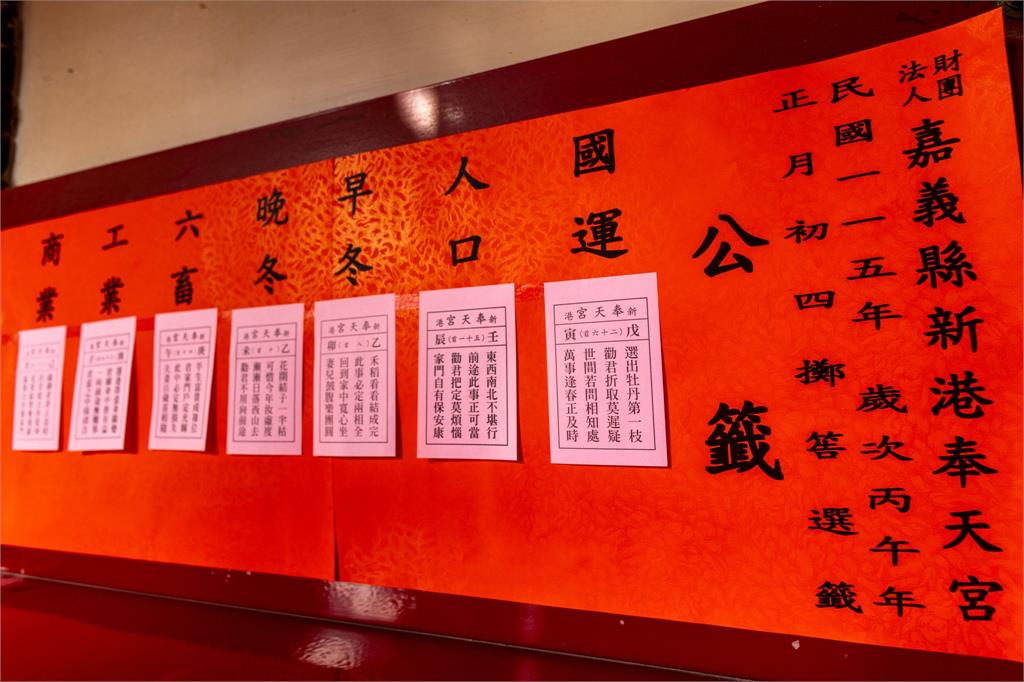 財團
法人
嘉義縣新港奉天宮
民國一一五年歲次丙午年
正月初四擲筶選籤
公籤
國運
新港奉天宮
戊寅(二十六首)
選出牡丹第一枝
勸君折取莫遲疑
世間若問相知處
萬事逢春正及時
人口
新港奉天宮
壬辰(五十一首)
東西南北不堪行
前途此事正可當
勸君把定莫煩惱
家門自有保安康
早冬
新港奉天宮
乙卯(八首)
禾稻看看結成完
此事必定兩相全
回到家中寬心坐
妻兒鼓腹樂團圓
晚冬
新港奉天宮
乙未(十首)
花開結子一半枯
可惜今年汝虛度
漸漸日落西山去
勸君不用向前途
六畜
新港奉天宮
庚午
平生富貴成祿位
君家門戶定光輝
此中必定無損失
夫妻百歲喜相隨
工業
新港奉天宮
商業